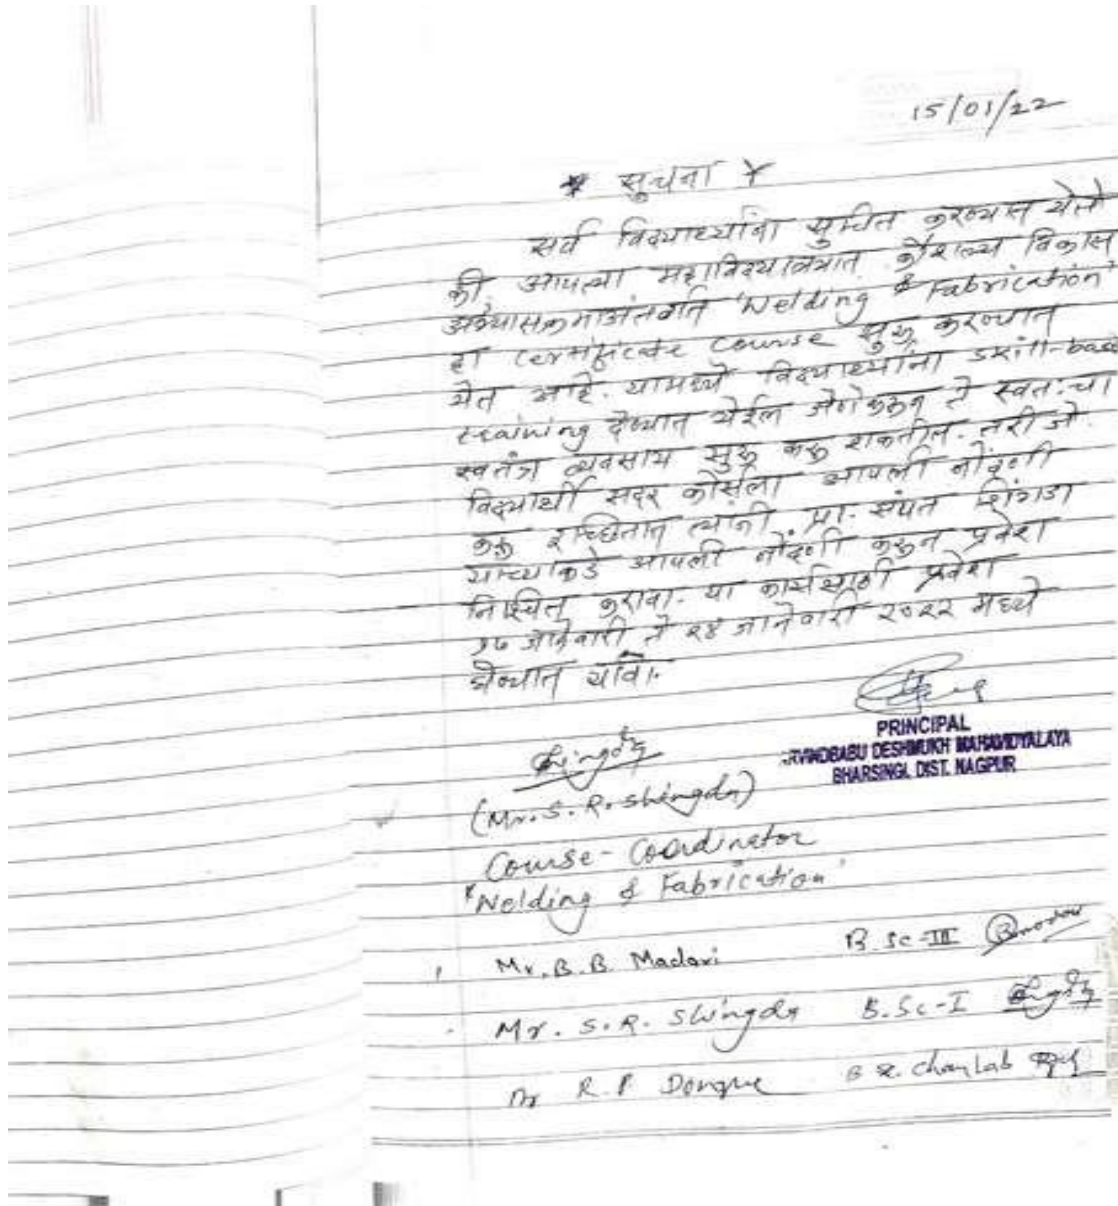 15/01/22
* सुचना *
सर्व विद्यार्थ्यांना सुचित करण्यात येते
की, आपल्या महाविद्यालयात कौशल्य विकास
अभ्यासक्रमाअंतर्गत 'Welding & Fabrication'
हा certificate course सुरू करण्यात
येत आहे. यामध्ये विद्यार्थ्यांना skill-base
training देण्यात येईल जेणेकरून ते स्वतःचा
स्वतंत्र व्यवसाय सुरू करू शकतील. तरी जे
विद्यार्थी सदर कोर्सला आपली नोंदणी
करू इच्छितात त्यांनी प्रा. संपत शिंगडा
यांच्याकडे आपली नोंदणी करून प्रवेश
निश्चित करावा. या कोर्ससाठी प्रवेश
१७ जानेवारी ते २४ जानेवारी २०२२ मध्ये
घेण्यात यावे.
PRINCIPAL
ARVINDBABU DESHMUKH MAHAVIDYALAYA
BHARSINGI, DIST. NAGPUR
(Mr. S. R. Shingda)
Course-Coordinator
'Welding & Fabrication'
Mr. B. B. Madavi B.Sc-III
Mr. S. R. Shingda B.Sc-I
Dr R. P. Dongre